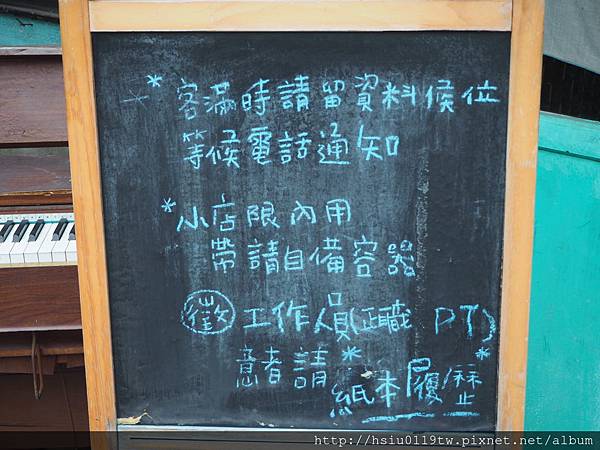 *客滿時請留資料候位
等候電話通知
*小店限內用
帶請自備容器
徵工作人員(正職 PT)
意者請*紙本履歷*
http://hsiu0119tw.pixnet.net/album